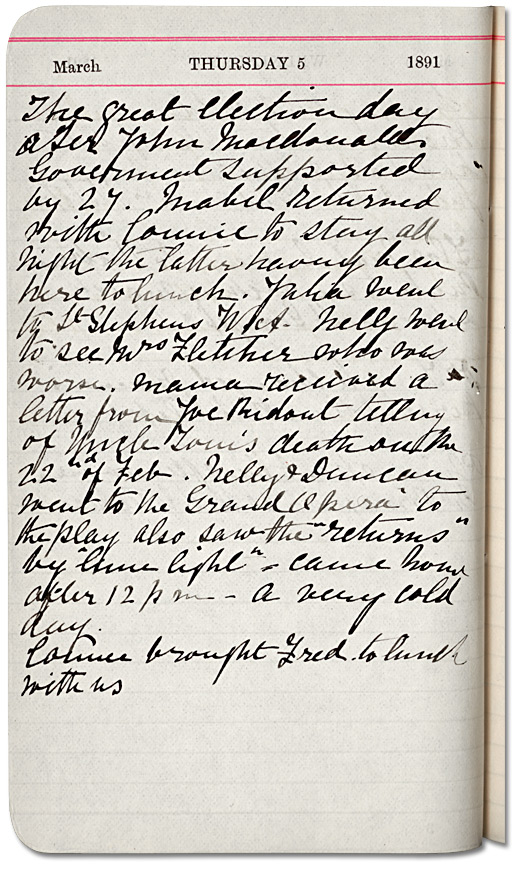 March THURSDAY 5 1891
The great election day
Ser John Macdonalds
Goverment supported
by 27. Mabel returned
with Connie to stay all
night the latter having been
here to lunch. Julia went
to St Stephens Nelly went
to see Mrs Fletcher who was
worse. Mama recieved a
letter from Joe Ridout telling
of Uncle Louis death on the
22nd of Feb. Nelly & Duncan
went to the Grand Opera to
the play also saw the "returns"
by "lime light" - came home
after 12 p m - A very cold
day.
Connie brought Fred to lunch
with us